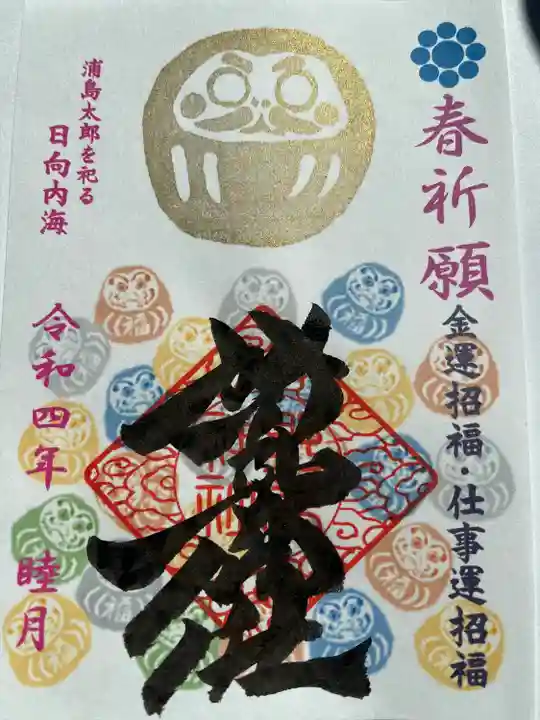 春祈願
金運招福・仕事運招福
浦島太郎を祀る
日向内海
令和四年 睦月